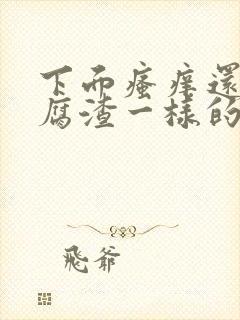 下而瘙痒還
腐渣一樣的
飛爺